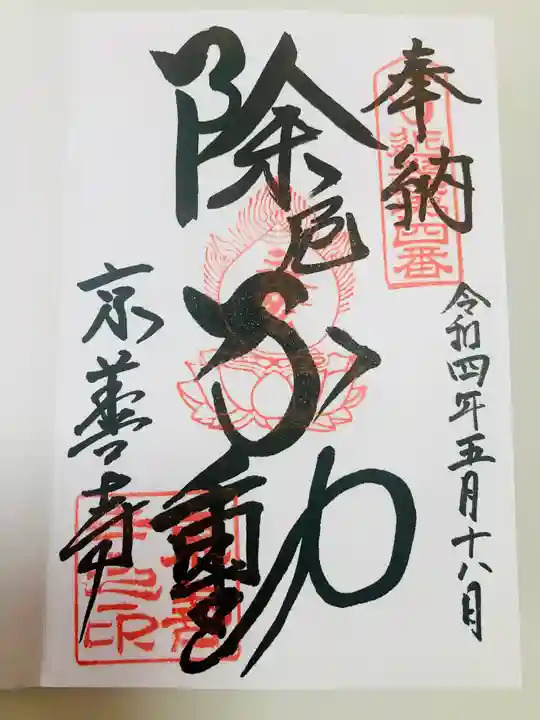 奉納
令和四年五月十八日
除厄不動
京善寺